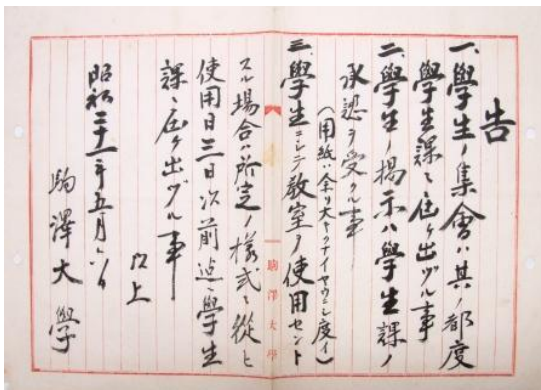 告
一、學生ノ集會ハ其ノ都度
學生課ニ届ケ出ヅル事
二、學生ノ揭示ハ學生課ノ
承認ヲ受クル事
(用紙ハ余リ大キクナイヤウニシ度イ)
三、學生ニシテ教室ヲ使用セント
駒澤大學
スル場合ハ所定ノ樣式ニ從ヒ
使用日三日以前迄ニ學生
課ニ届ケ出ヅル事
以上
昭和二十一年五月六日
駒澤大學